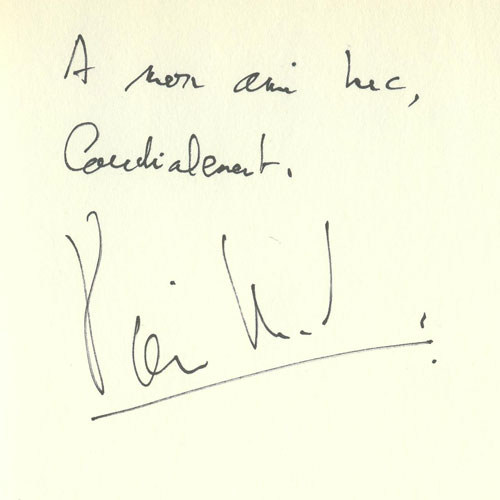 A mon ami Luc,
Cordialement.